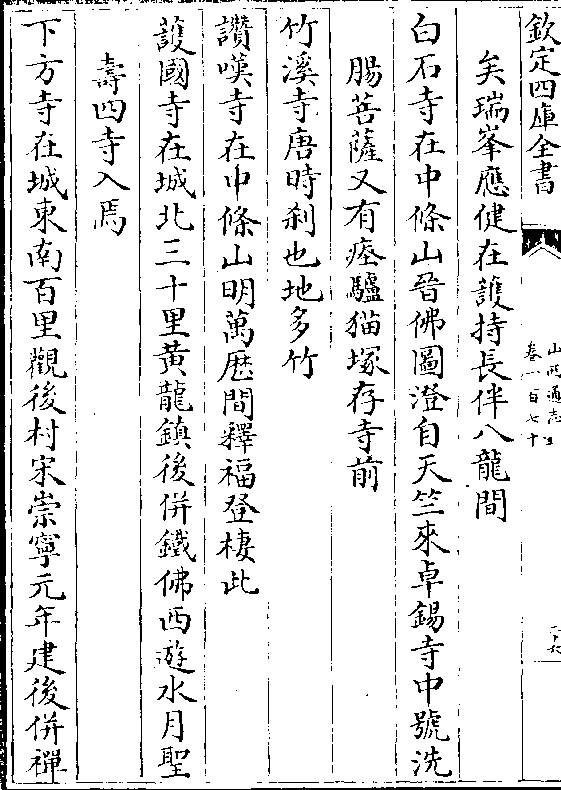 欽定四庫全書
山西通志
卷一百七十
矣瑞峯應健在護持長伴八龍間
白石寺在中條山晉佛圖澄自天竺來卓錫寺中號洗
腸菩薩又有瘞驢猫塚存寺前
竹溪寺唐時刹也地多竹
讚嘆寺在中條山明萬厯間釋福登棲此
護國寺在城北三十里黄龍鎮後併鐵佛西遊水月聖
壽四寺入焉
下方寺在城東南百里觀後村宋崇寧元年建後併禪